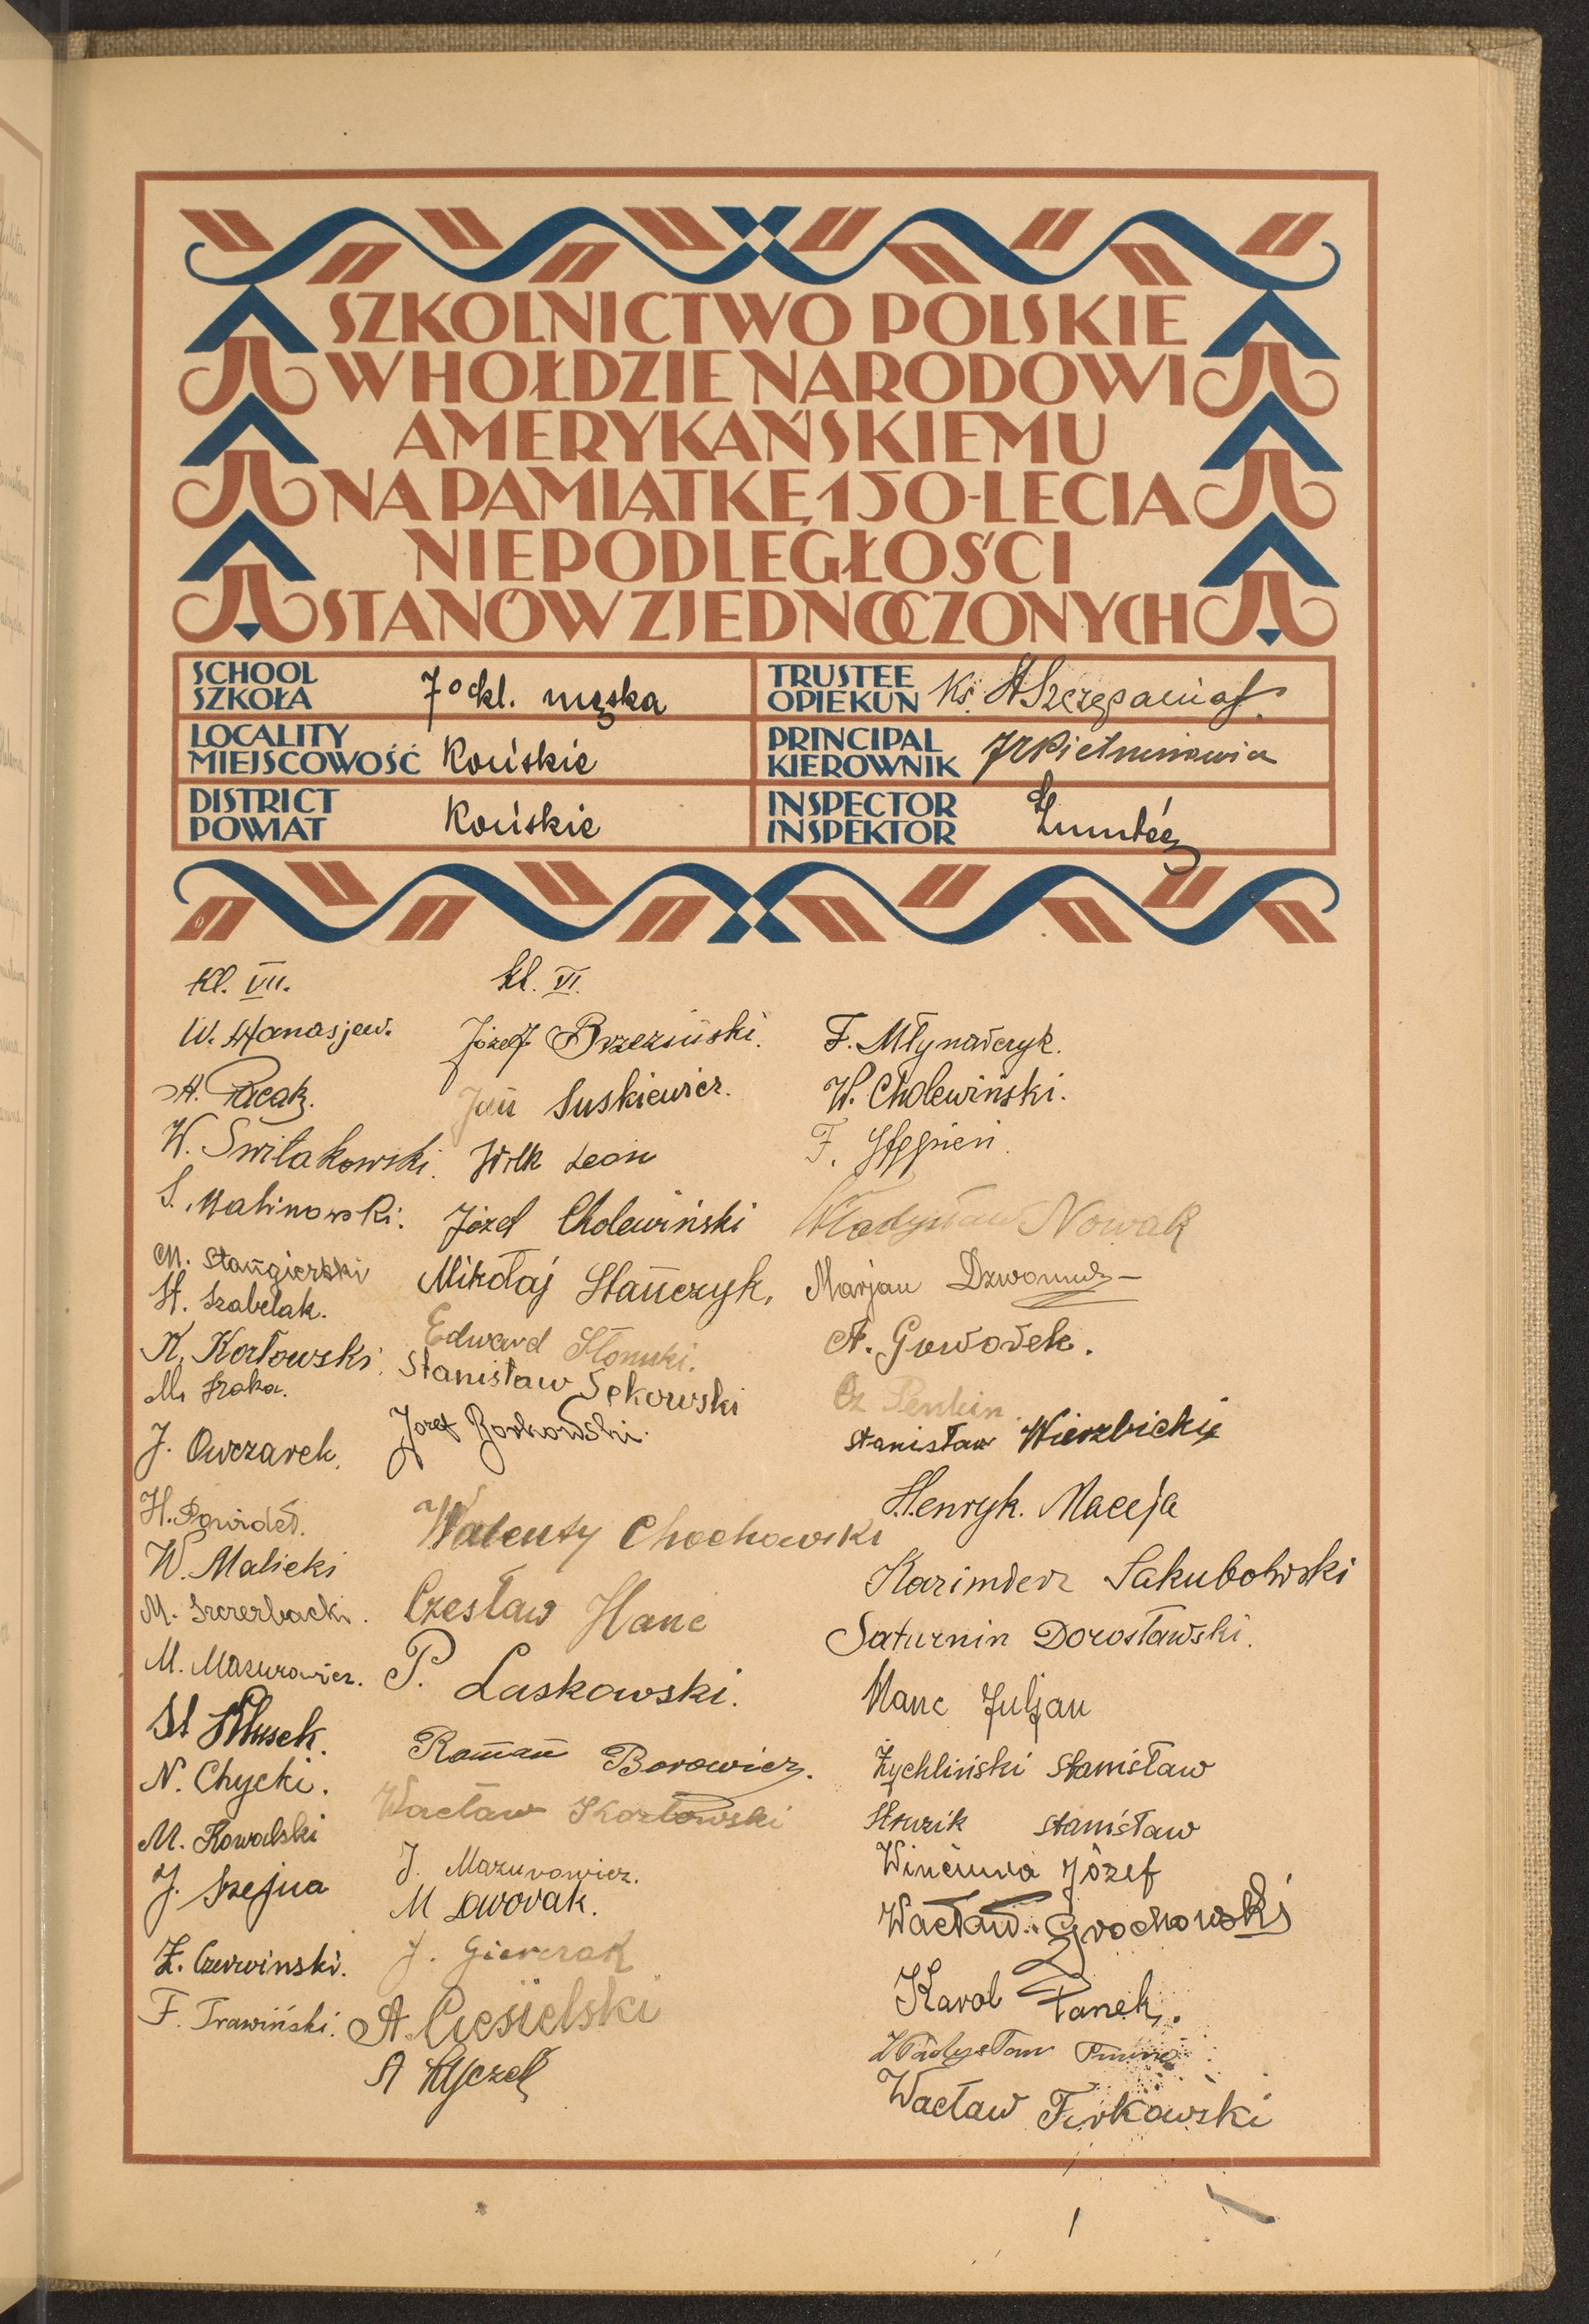 SZKOLNICTWO POLSKIE
W HOŁDZIE NARODOWI
AMERYKAŃSKIEMU
NA PAMIĄTKĘ 150-LECIA
NIEPODLEGŁOŚCI
STANÓW ZJEDNOCZONYCH
SCHOOL
SZKOŁA
7º kl. męska
TRUSTEE
OPIEKUN
Ks.
LOCALITY
MIEJSCOWOŚĆ
Końskie
PRINCIPAL
KIEROWNIK
DISTRICT
POWIAT
Końskie
INSPECTOR
INSPEKTOR
Kl. VII.
W. Afanasjew.
A. Pacak.
W. Świtakowski.
S. Malinowski.
M. Stangierski
St. Szabelak.
K. Kozłowski.
M. Sroka.
J. Owczarek.
H. Powideł.
W. Malicki
M. Szczerbacki.
M. Mazurowicz.
St Kłusek.
N. Chycki.
M. Kowalski
J. Szejna
Z. Czerwinski.
F. Trawiński.
kl. VI.
Józef Brzeziński.
Jan Suskiewicz.
Wilk Leon
Józef Cholewiński
Mikołaj Stańczyk,
Edward Słomski.
Stanisław Sękowski
Józef Borkowski.
Walenty Chochowski
Czesław Hanc
P. Laskowski.
Roman Borowicz.
Wacław Kozłowski
J. Mazurowicz.
M Dworak.
J. Gierczak
A. Ciesielski
A
F. Młynarczyk.
W. Cholewiński.
F. Stępień.
Władysław Nowak
Marjan
A. Goworek.
Cz Penkin
Stanisław Wierzbicki
Henryk. Maceja
Kazimierz Jakubowski
Saturnin Dorosławski.
Hanc Juljan
Żychliński Stanisław
Struzik Stanisław
Winciuna Józef
Wacław Grochowski
Karol Łanek.
Władysław
Wacław Firkowski